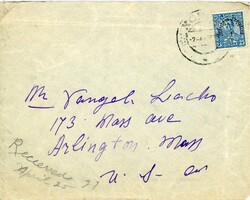 Mr Vangel Lacho
173 Mass ave
Arlington, Mass
U S a
Recieved
April 25